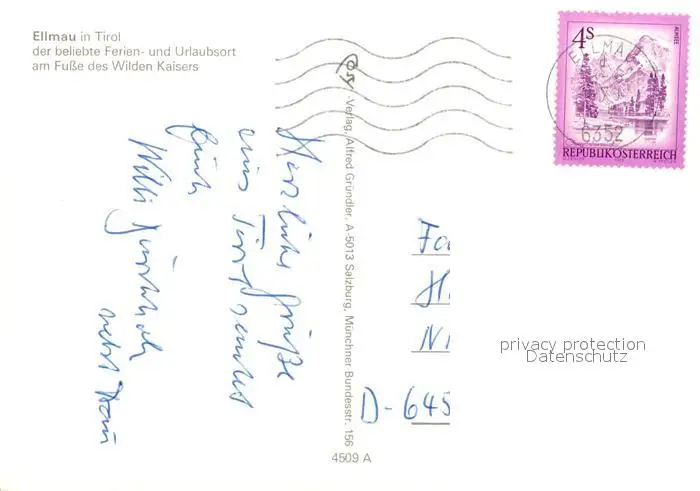 Ellmau in Tirol
der beliebte Ferien- und Urlaubsort
am Fuße des Wilden Kaisers
Cosy-Verlag, Alfred Gründler, A-5013 Salzburg, Münchner Bundesstr. 156
4509 A
4S
ALMSEE
REPUBLIK ÖSTERREICH
ELLMAU
6352
Herzliche Grüße
aus Tirol sendet
Euch
Willi
nebst Frau
Fa
H
N
D-645
privacy protection
Datenschutz